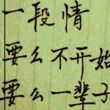 一段情
要么不开始
要么一辈